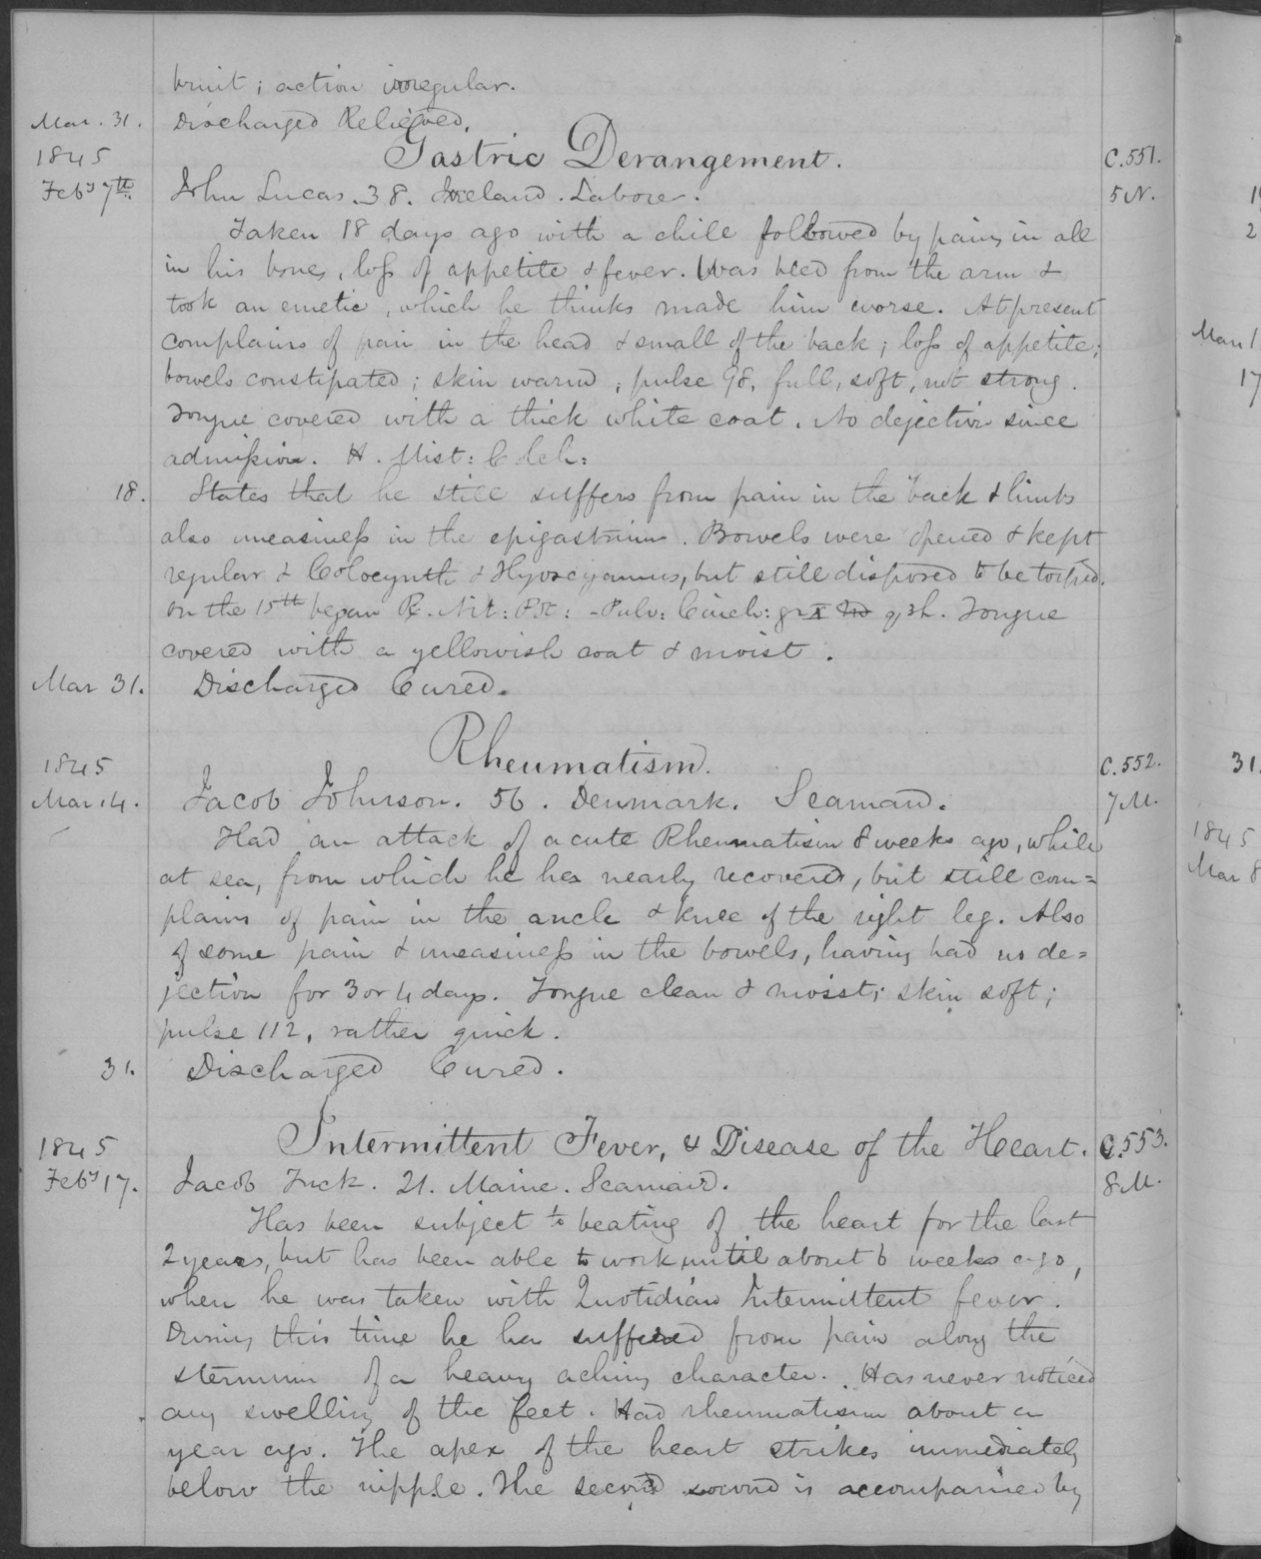 bruit; action irregular.
Mar. 31. Discharged Relieved.
1845 Gastric Derangement. C.551.
Feby 7th. John Lucas. 38. Ireland. Laborer. 5 N.
Taken 18 days ago with a chill followed by pains in all
in his bones, loss of appetite & fever. Was bled from the arm &
took an emetic, which he thinks made him worse. At present
complains of pain in the head & small of the back; loss of appetite;
bowels constipated; skin warm; pulse 98, full, soft, not strong.
Tongue covered with a thick white coat. No dejection since
admission. H. Mist: Colch:
18. States that he still suffers from pain in the back & limbs
also uneasiness in the epigastrium. Bowels were opened & kept
regular & Colocynth & Hyoscyamus, but still disposed to be torpid.
On the 15th began R. Nit: Pot: - Pulv: Cinch: gr X q 3h. Tongue
covered with a yellowish coat & moist.
Mar 31. Discharged Cured.
1845 Rheumatism. C.552.
Mar 14. Jacob Johnson. 56. Denmark. Seaman. 7 M.
Had an attack of acute Rheumatism 8 weeks ago, while
at sea, from which he has nearly recovered, but still com=
plains of pain in the ancle & knee of the right leg. Also
of some pain & uneasiness in the bowels, having had no de=
jection for 3 or 4 days. Tongue clean & moist; skin soft;
pulse 112, rather quick.
31. Discharged Cured.
1845 Intermittent Fever, & Disease of the Heart. C.553.
Feby 17. Jacob Tuck. 21. Maine. Seaman. 8 M.
Has been subject to beating of the heart for the last
2 years, but has been able to work until about 6 weeks ago,
when he was taken with Quotidian Intermittent fever.
During this time he has suffered from pain along the
sternum of a heavy aching character. Has never noticed
any swelling of the feet. Had rheumatism about a
year ago. The apex of the heart strikes immediately
below the nipple. The second sound is accompanied by
2
Mar 1
17
31.
1845
Mar 8